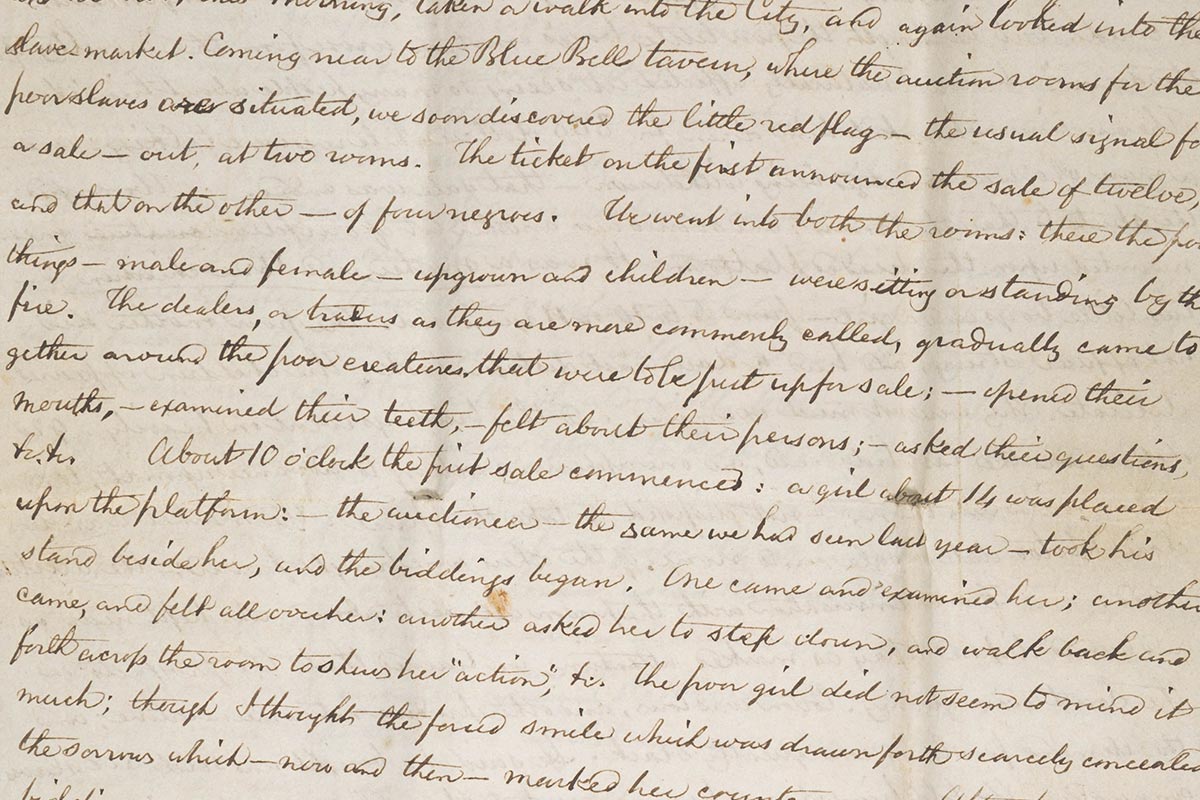 this morning, taken a walk into the City, and again looked into the
slave market. Coming near to the Blue Bell tavern, where the auction rooms for the
poor slaves are situated, we soon discovered the little red flag — the usual signal fo
a sale — out, at two rooms. The ticket on the first announced the sale of twelve,
and that on the other — of four negroes. We went into both the rooms: there the poo
things — male and female — upgrown and children — were sitting or standing by th
fire. The dealers, or traders as they are more commonly called, gradually came to
gether around the poor creatures that were to be put up for sale; — opened their
mouths, — examined their teeth, — felt about their persons; — asked their questions,
&c. &c. About 10 o'clock the first sale commenced: a girl about 14 was placed
upon the platform: — the auctioneer — the same we had seen last year — took his
stand beside her, and the biddings began. One came and examined her; another
came, and felt all over her: another asked her to step down, and walk back and
forth across the room to shew her "action", &c. The poor girl did not seem to mind it
much; though I thought the forced smile which was drawn forth scarcely concealed
the sorrows which — now and then — marked her